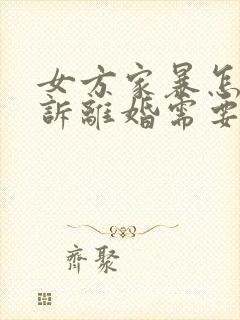 女方家暴怎
訴離婚需要
齊聚